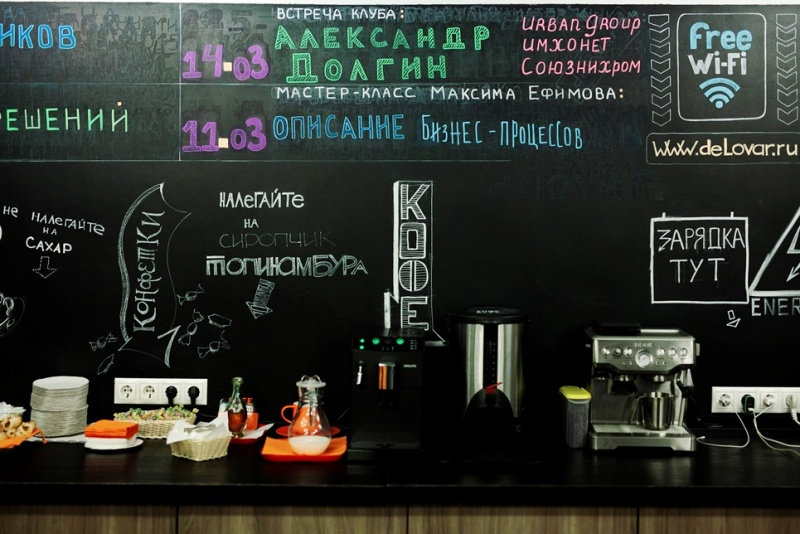 ИКОВ
РЕШЕНИЙ
ВСТРЕЧА КЛУБА:
14.03
АЛЕКСАНДР
ДОЛГИН
URBAN GROUP
ИМХОНЕТ
СОЮЗНИХРОМ
МАСТЕР-КЛАСС МАКСИМА ЕФИМОВА:
11.03
ОПИСАНИЕ БИЗНЕС-ПРОЦЕССОВ
free
Wi-Fi
www.deLovar.ru
НЕ НАЛЕГАЙТЕ
НА
САХАР
КОНФЕТКИ
НАЛЕГАЙТЕ
НА
СИРОПЧИК
ТОПИНАМБУРА
КОФЕ
ЗАРЯДКА
ТУТ
ENER